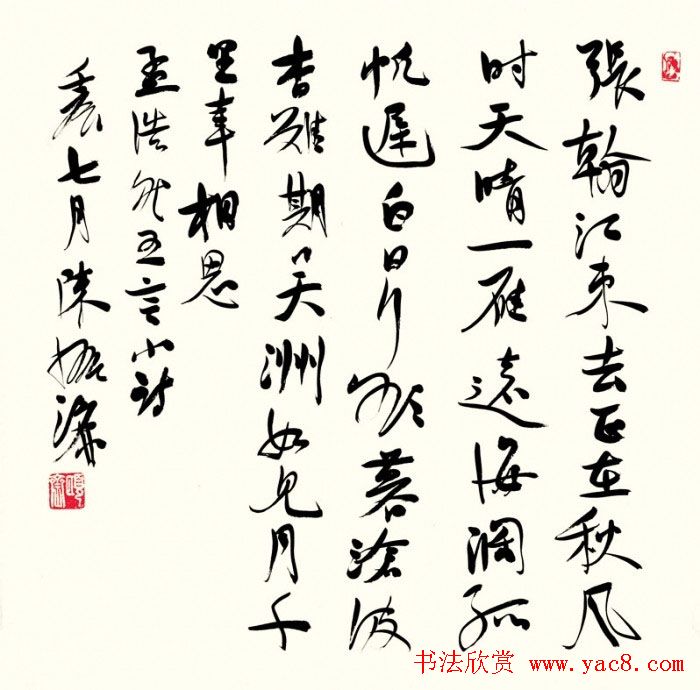 張翰江東去正在秋风
时天晴一雁遠海濶孤
帆遲白日行欲暮滄波
杳難期吴洲如见月千
里幸相思
孟浩然五言小诗
七月陳振濂
书法欣赏 www.yac8.com